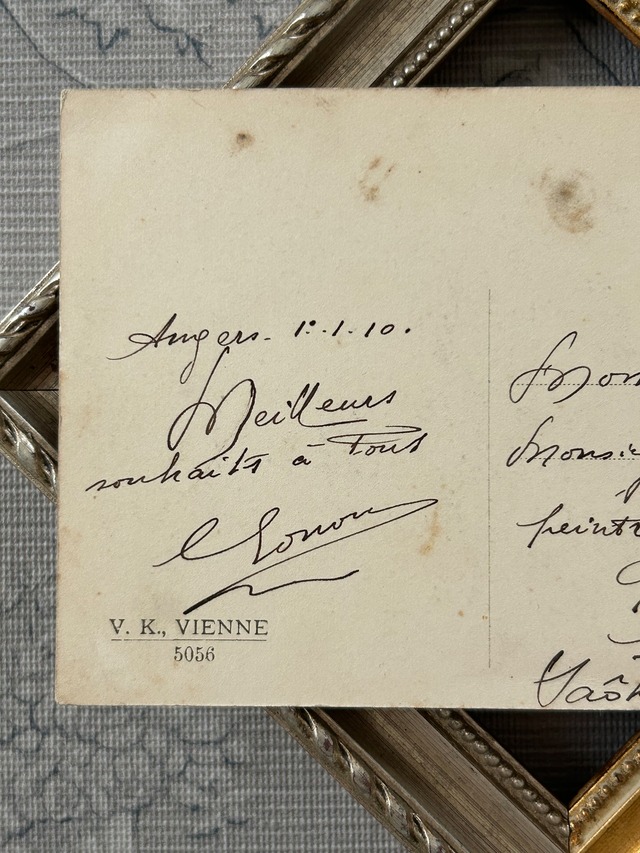 Angers. 1er.1.10.
Meilleurs
souhaits à tous
V. K., VIENNE
5056
Mon
Monsi
peintr
Saô